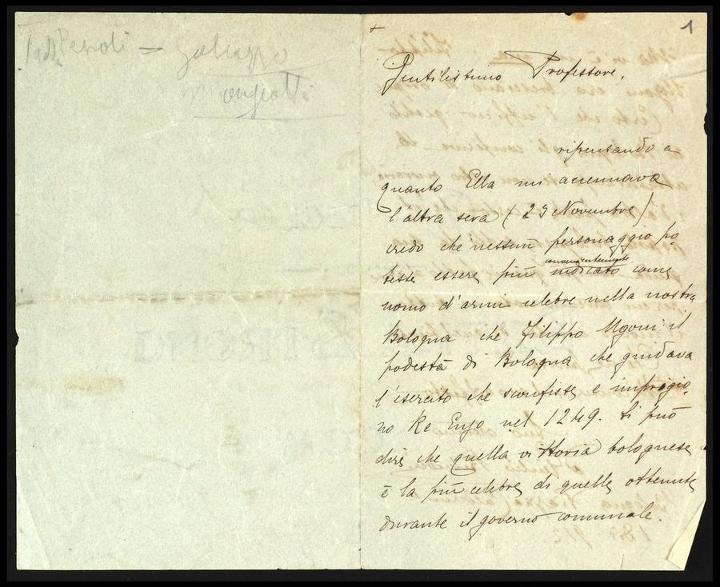 Pepoli — Galeazzo
1
Gentilissimo Professore,
ripensando a
quanto Ella mi accennava
l'altra sera (25 Novembre)
credo che nessun personaggio po-
tesse essere più indicato come
uomo d'armi celebre nella nostra
Bologna che Filippo Ugoni il
podestà di Bologna che guidava
l'esercito che sconfisse e imprigio-
nò Re Enzo nel 1249. Si può
dire che quella vittoria bolognese
è la più celebre di quelle ottenute
durante il governo comunale.